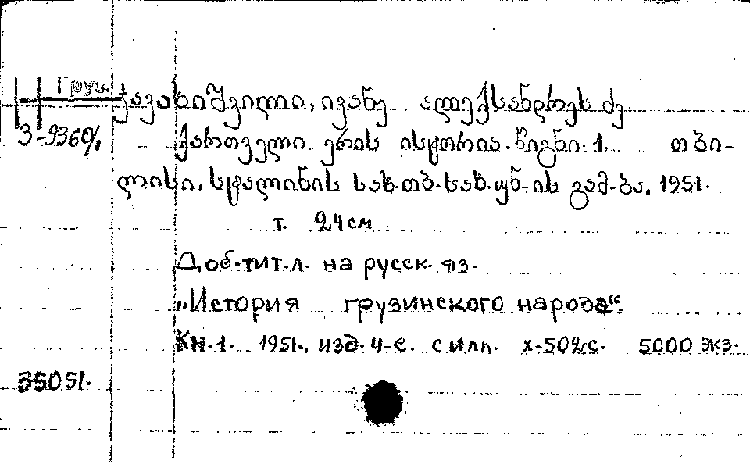 Груз.
ჯავახიშვილი, ივანე ალექსანდრეს ძე
3-9360/1. ქართველი ერის ისტორია. წიგნი 1. თბი-
ლისი, სტალინის სახ. თბ. სახ. უნ-ის გამ-ბა, 1951.
т. 24 см
Доб. тит. л. на русск. яз.
"История грузинского народа".
Кн. 1. 1951, изд. 4-е. с илл. х-50%с. 5000 экз.
35051.